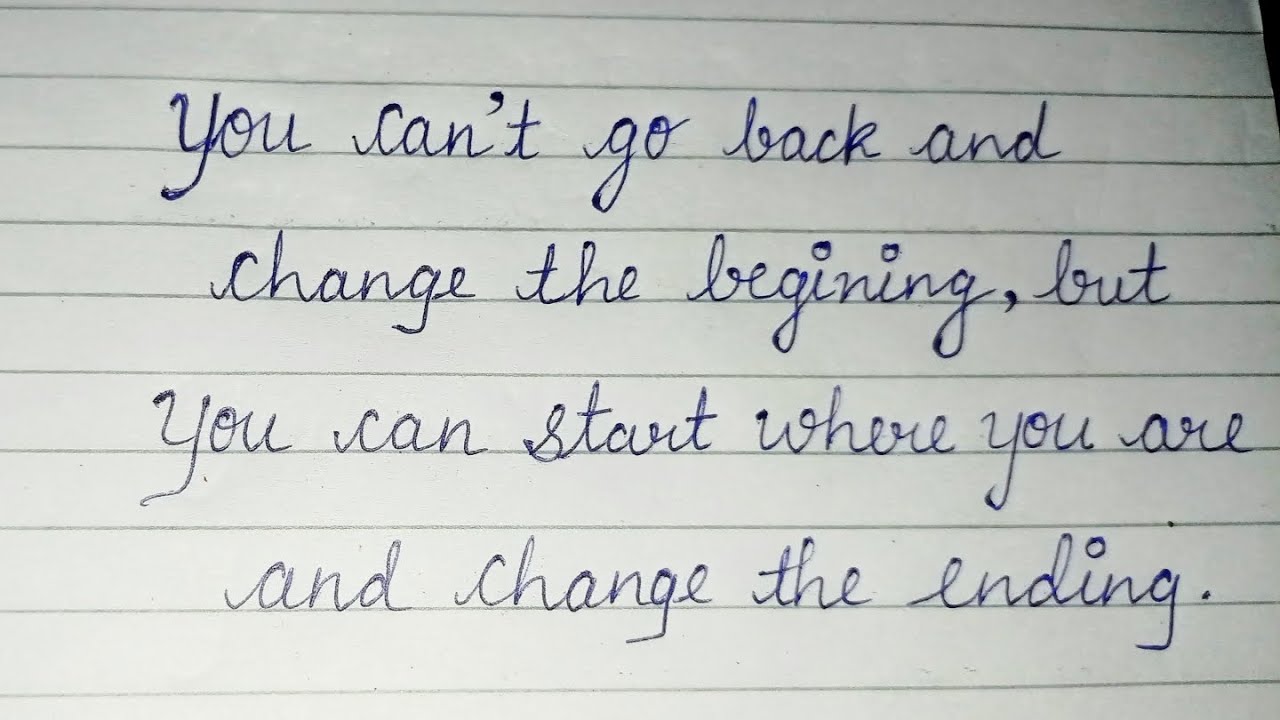 You can't go back and
change the begining, but
You can start where you are
and change the ending.